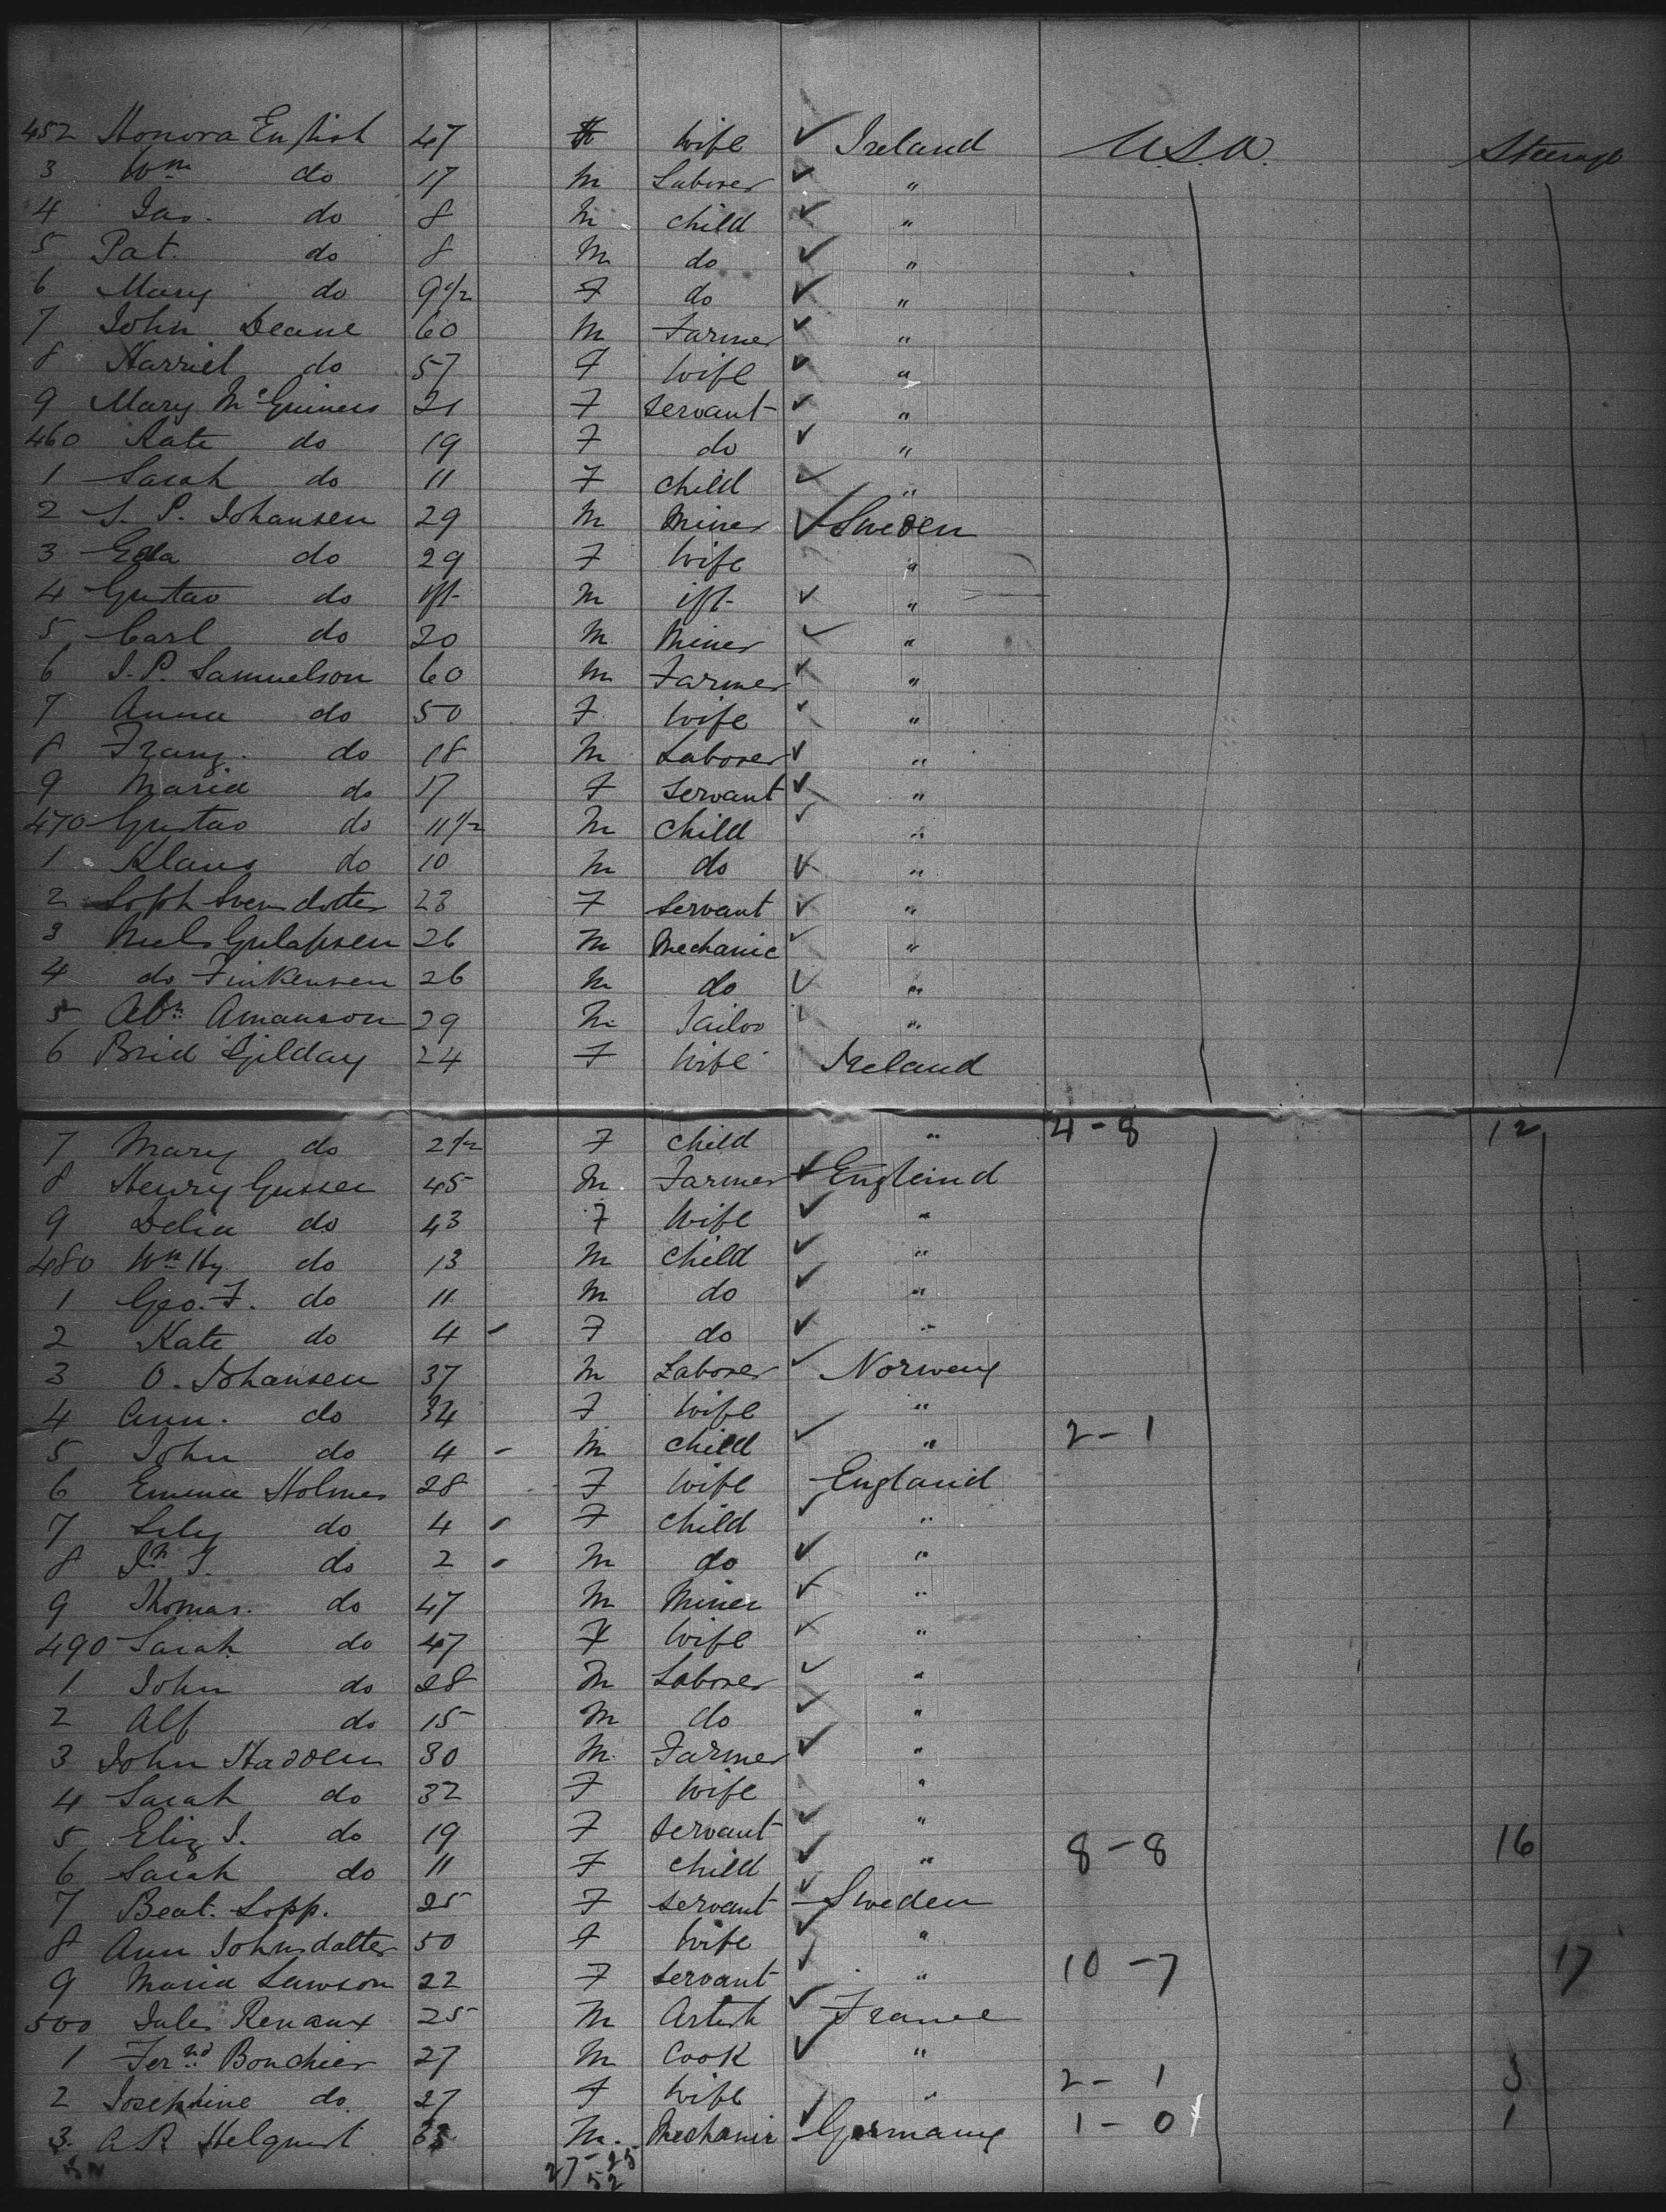 452 Honora English 47 F Wife ✓ Ireland U.S.A. Steerage
3 Wm do 17 M Laborer ✓ "
4 Jas. do 8 M child ✓ "
5 Pat. do 8 M do ✓ "
6 Mary do 9 1/2 F do ✓ "
7 John Deane 60 M Farmer ✓ "
8 Harriet do 57 F Wife ✓ "
9 Mary McGuiness 21 F Servant ✓ "
460 Kate do 19 F do ✓ "
1 Sarah do 11 F child ✓ "
2 S. P. Johansen 29 M Miner ✓ Sweden
3 Edla do 29 F Wife "
4 Gustav do ift M ift ✓ "
5 Carl do 20 M Miner ✓ "
6 J. P. Samuelson 60 M Farmer ✓ "
7 Anna do 50 F Wife ✓ "
8 Franz. do 18 M Laborer ✓ "
9 Maria do 17 F Servant ✓ "
470 Gustav do 11 1/2 M child ✓ "
1 Klaus do 10 M do ✓ "
2 Soph Svensdotter 23 F Servant ✓ "
3 Niels 26 M Mechanic ✓ "
4 do Finkensen 26 M do ✓ "
5 Abm Amanson 29 M Tailor ✓ "
6 Brid Gilday 24 F Wife Ireland
7 Mary do 2 1/2 F child " 4-8 12
8 Henry Gusser 45 M. Farmer ✓ England
9 Delia do 43 F Wife ✓ "
480 Wm Hy. do 13 M child ✓ "
1 Geo. F. do 11 M do ✓ "
2 Kate do 4 - F do ✓ "
3 O. Johansen 37 M Laborer ✓ Norway
4 Ann. do 34 F Wife "
5 John do 4 - M child ✓ " 2-1
6 Emma Holmes 28 F Wife England
7 Lily do 4 - F child ✓ "
8 Jn T. do 2 - M do ✓ "
9 Thomas. do 47 M Miner ✓ "
490 Sarah do 47 F Wife ✓ "
1 John do 28 M Laborer ✓ "
2 Alf do 15 M do ✓ "
3 John Hadden 30 M. Farmer ✓ "
4 Sarah do 32 F Wife "
5 Eliz J. do 19 F Servant ✓ "
6 Sarah do 11 F child ✓ " 8-8 16
7 Beat. Lopp. 25 F Servant ✓ Sweden
8 Ann Johnsdatter 50 F Wife ✓ "
9 Maria Lawson 22 F Servant ✓ " 10-7 17
500 Jules Renaux 25 M Artist ✓ France
1 Fernd Bouchier 27 M Cook ✓ "
2 Josephine do. 27 F Wife " 2-1 3
3. A R Helquist M. Mechanic ✓ Germany 1-0 1
52 27-25
52